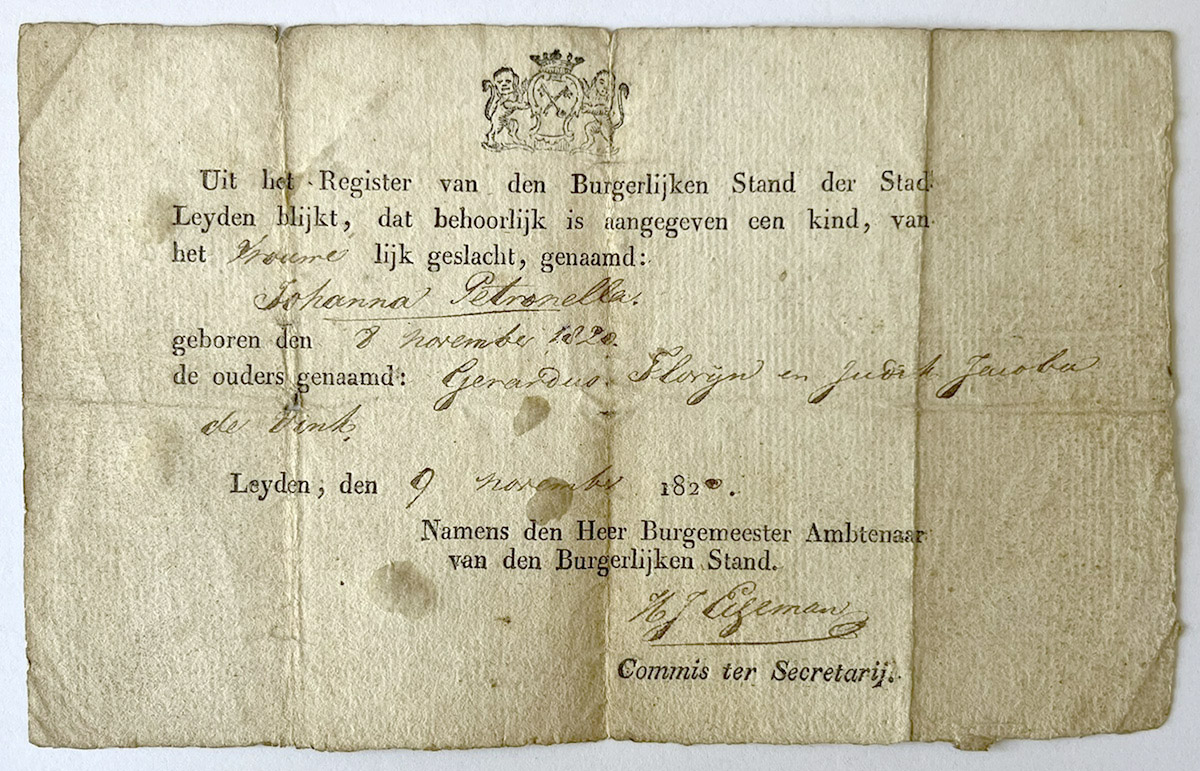 Uit het Register van den Burgerlijken Stand der Stad
Leyden blijkt, dat behoorlijk is aangegeven een kind, van
het Vrouwe lijk geslacht, genaamd:
Johanna Petronella.
geboren den 8 november 1820.
de ouders genaamd: Gerardus Floryn en Judith Jacoba
de Vink,
Leyden, den 9 november 1820.
Namens den Heer Burgemeester Ambtenaar
van den Burgerlijken Stand.
H J
Commis ter Secretarij.